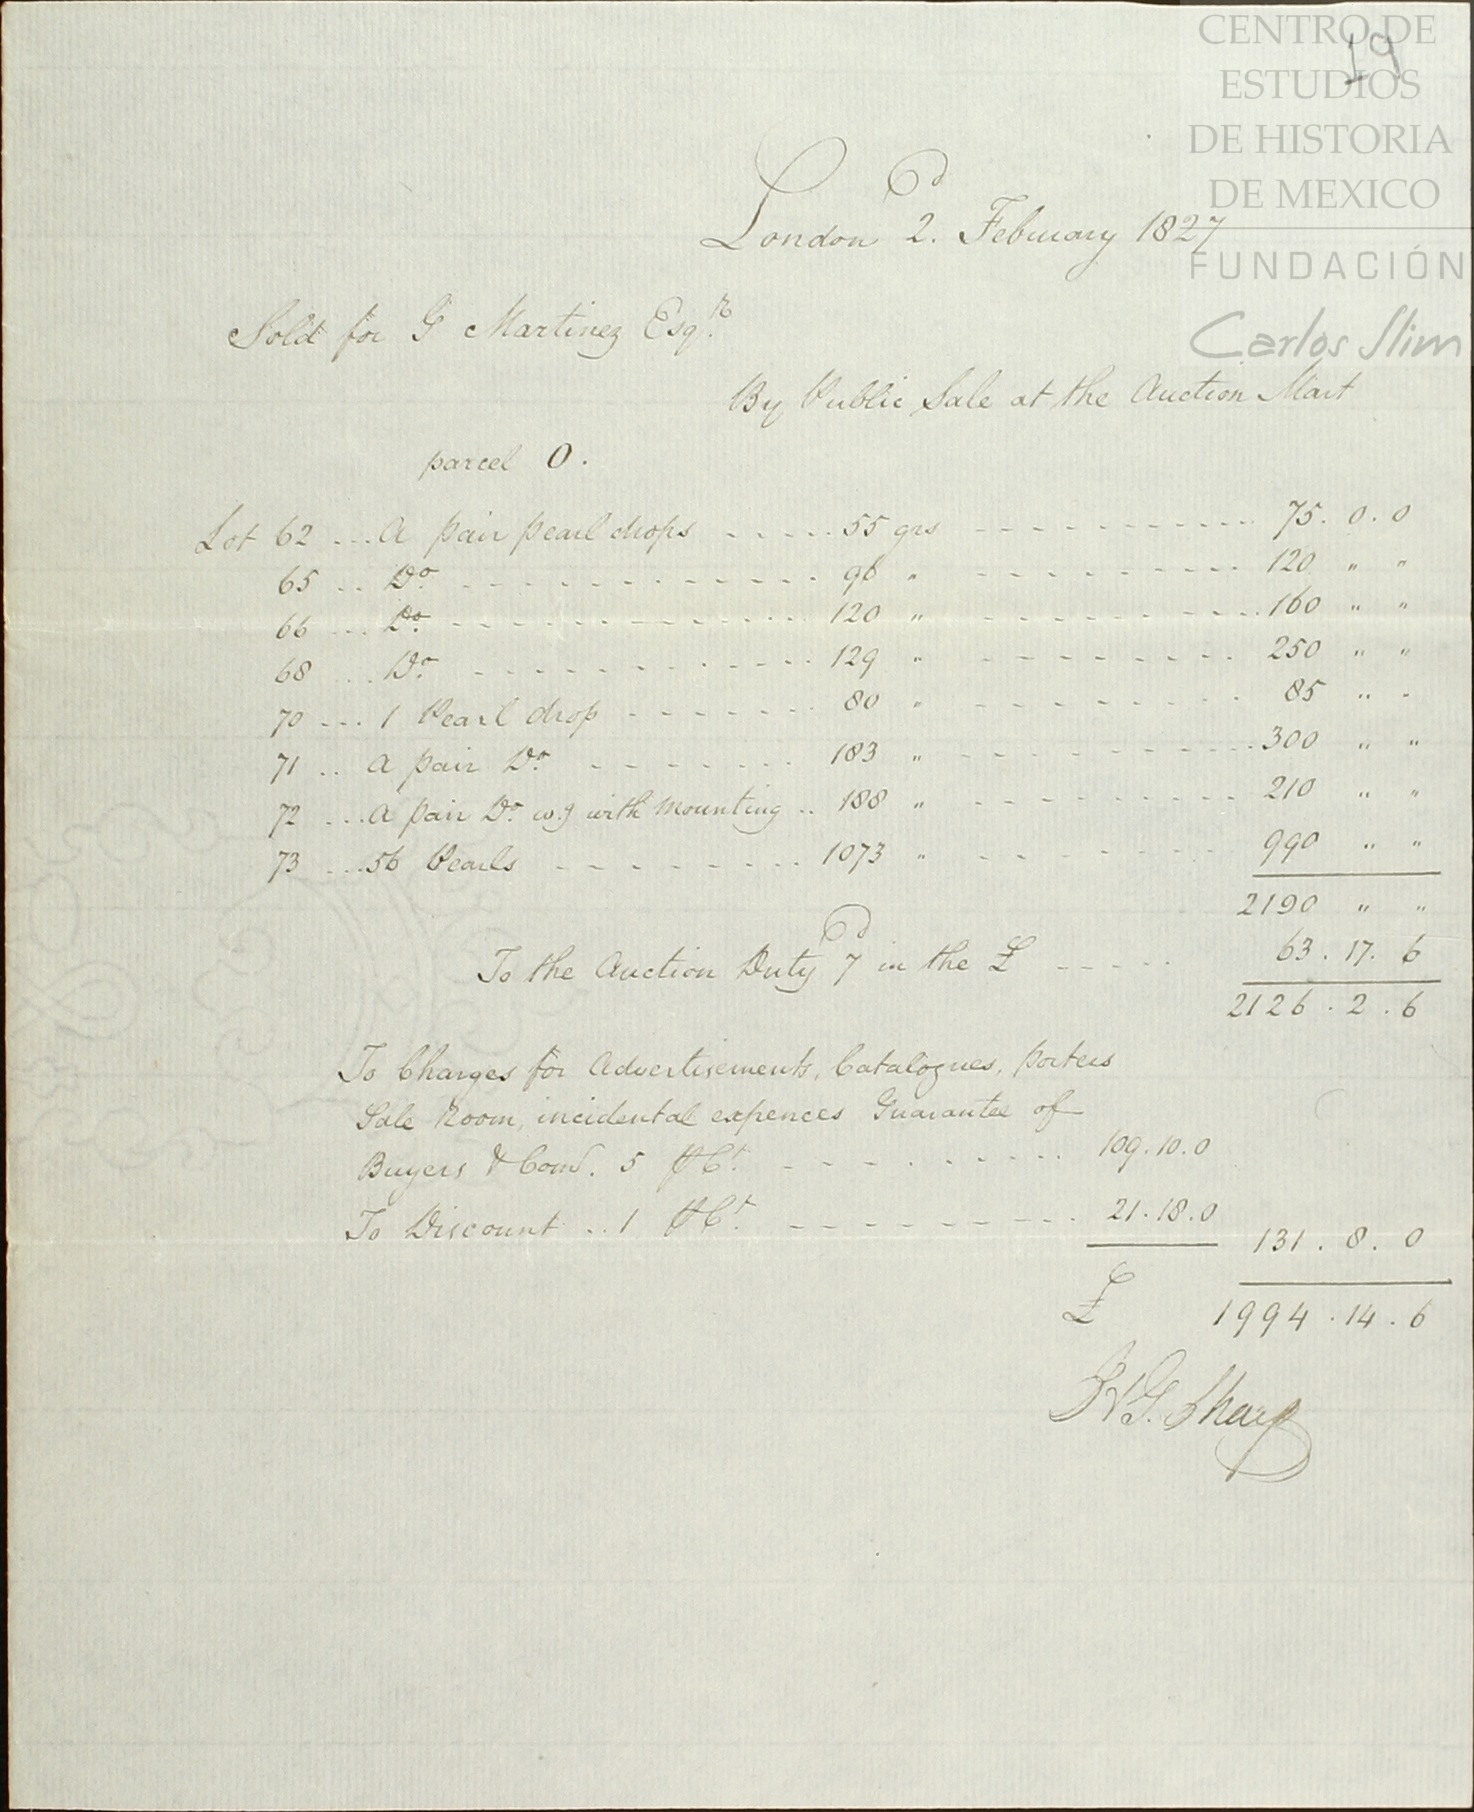 CENTRO DE
ESTUDIOS
DE HISTORIA
DE MEXICO
FUNDACIÓN
Carlos Slim
19
London 2.d February 1827
Sold for G Martinez Esqr.
By Public Sale at the Auction Mart
parcel O.
Lot 62 ... A pair pearl drops ..... 55 grs ---------- 75. 0. 0
65 .. Do. ------------ 96 " ---------- 120 " "
66 ... Do. ------------ 120 " ---------- 160 " "
68 ... Do. ------------ 129 " ---------- 250 " "
70 ... 1 Pearl drop ------- 80 " ---------- 85 " "
71 .. A pair Do. ------- 183 " ---------- 300 " "
72 ... A pair Do. wg with mounting .. 188 " ---------- 210 " "
73 ... 56 Pearls --------- 1073 " ---------- 990 " "
2190 " "
To the Auction Duty 7d in the £ ----- 63. 17. 6
2126. 2. 6
To Charges for Advertisements, Catalogues, porters
Sale Room, incidental expences Guarantee of
Buyers & Comn. 5 ⅌ Ct. ---------- 109. 10. 0
To Discount .. 1 ⅌ Ct. ---------- 21. 18. 0 131. 8. 0
£ 1994. 14. 6
G. Sharp